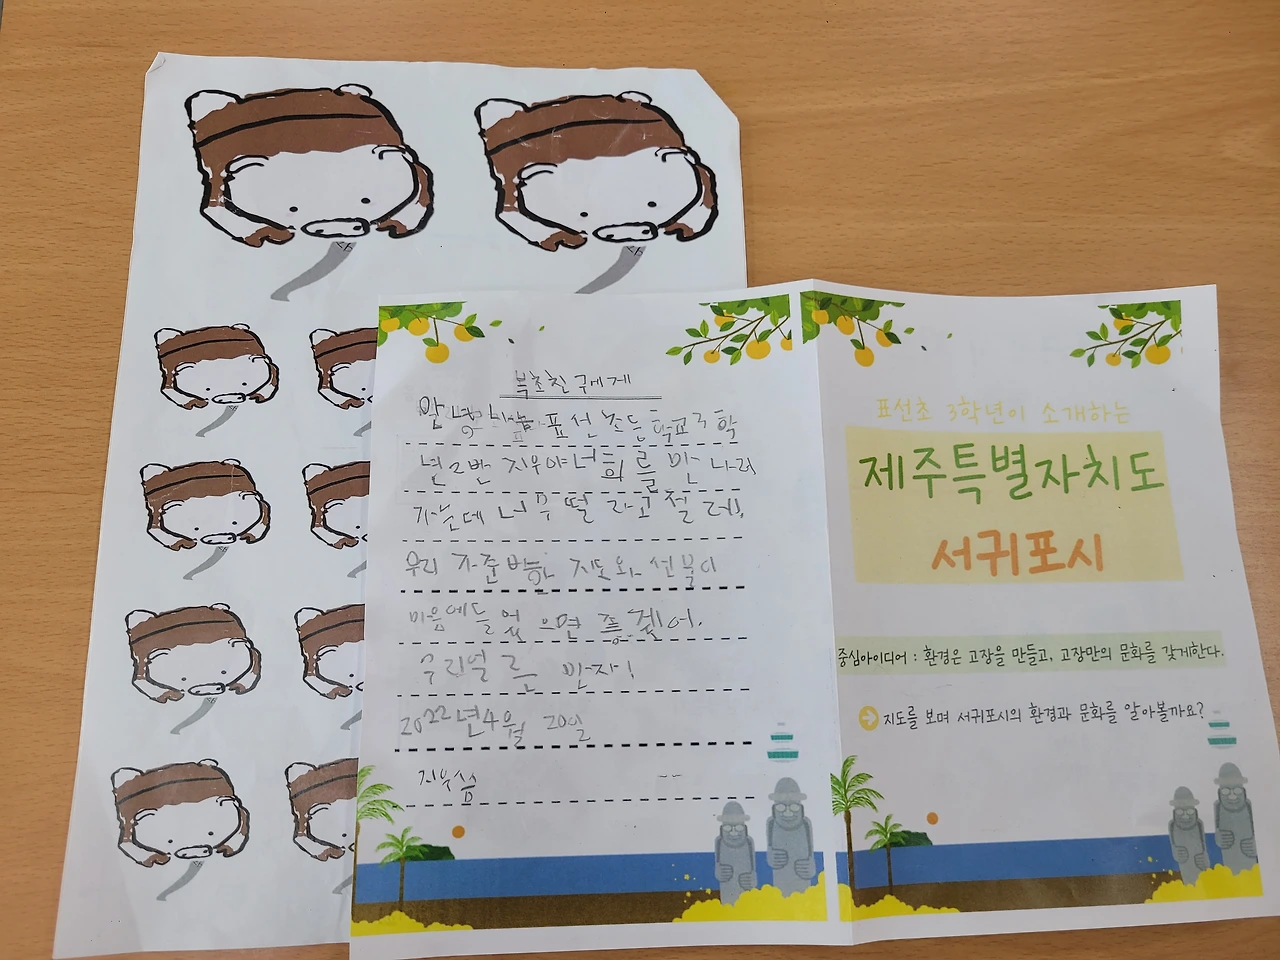 북초친구에게
안녕 나는 표선 초등학교 3학
년 2반 지우야 너희를 만 나러
가는데 너무 떨 리고 설 레.
우리 가 준비한 지도와 선물이
마음에 들 었 으면 좋 겠어.
우리 얼 른 만 자!
2022년 4월 20일
지우 씀
표선초 3학년이 소개하는
제주특별자치도
서귀포시
중심아이디어 : 환경은 고장을 만들고, 고장만의 문화를 갖게한다.
지도를 보며 서귀포시의 환경과 문화를 알아볼까요?